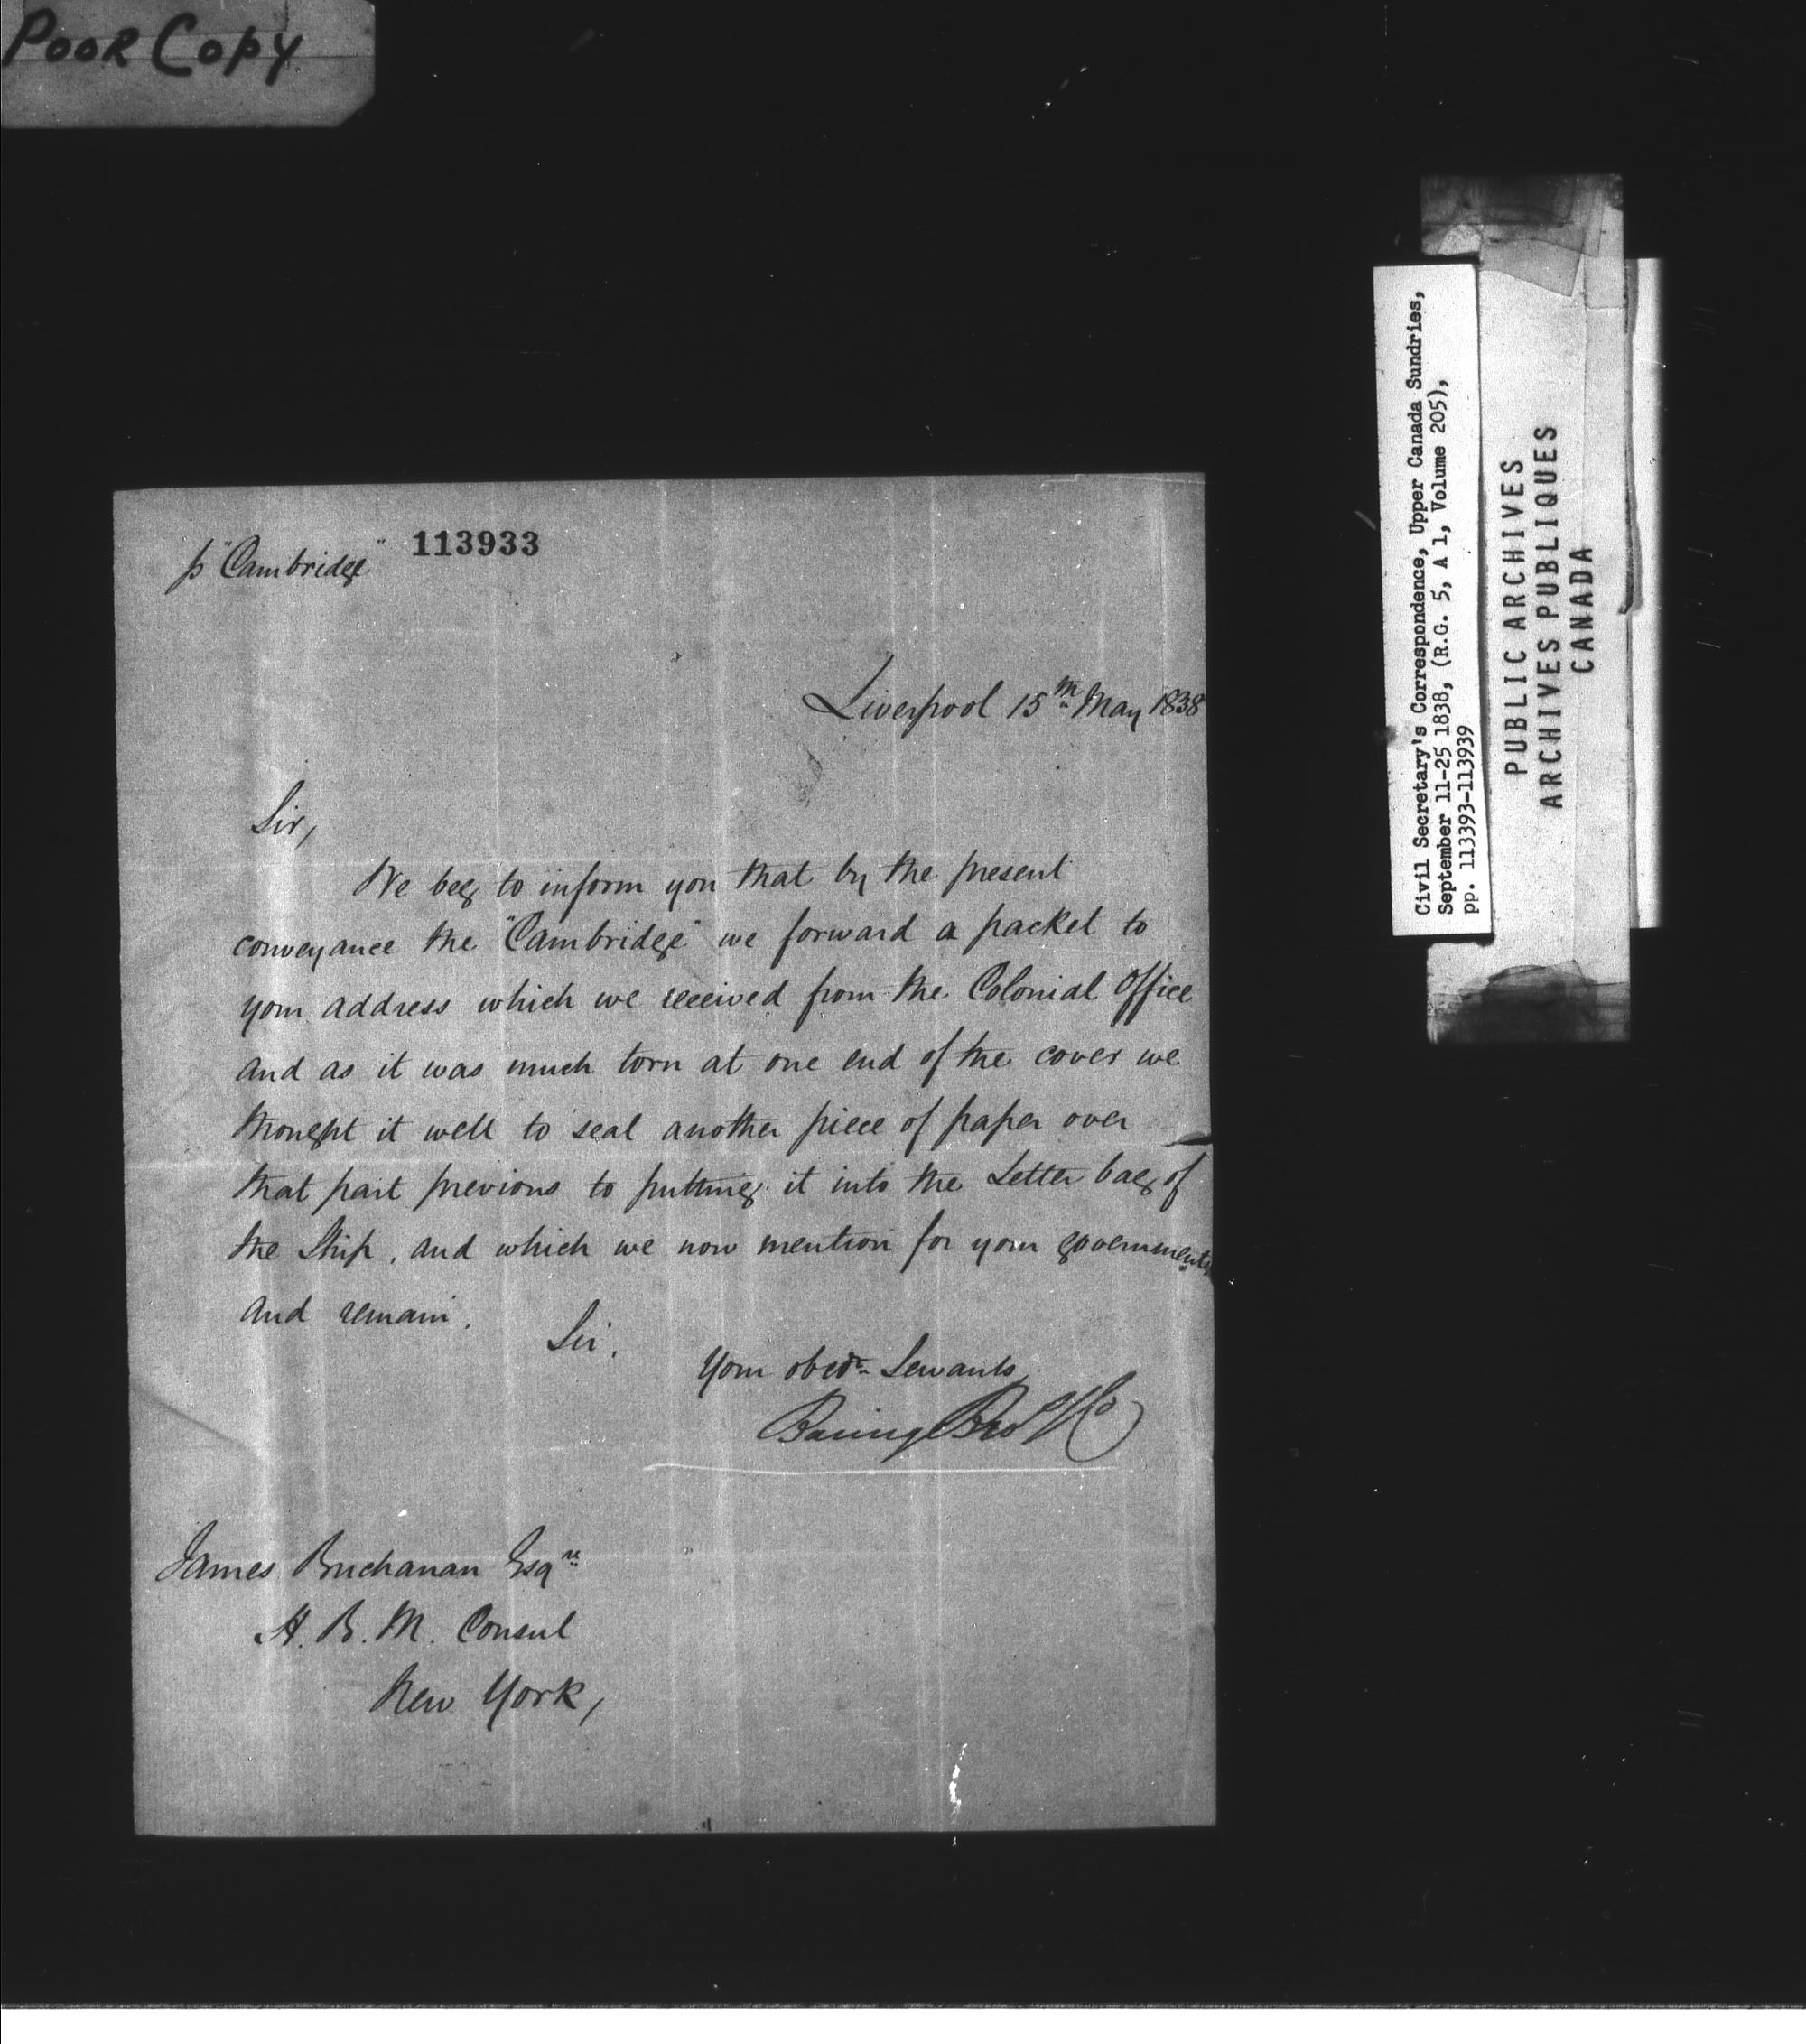 Poor Copy
p "Cambridge"
113933
Liverpool 15th May 1838
Sir,
We beg to inform you that by the present
conveyance the "Cambridge" we forward a packet to
your address which we received from the Colonial Office
and as it was much torn at one end of the cover we
thought it well to seal another piece of paper over
that part previous to putting it into the Letter bag of
the Ship, and which we now mention for your government,
and remain.
Sir.
Your obedt. Servants
Baring Bros & Co
James Buchanan Esqre
H. B. M. Consul
New York,
Civil Secretary's Correspondence, Upper Canada Sundries,
September 11-25 1838, (R.G. 5, A 1, Volume 205),
pp. 113393-113939
PUBLIC ARCHIVES
ARCHIVES PUBLIQUES
CANADA